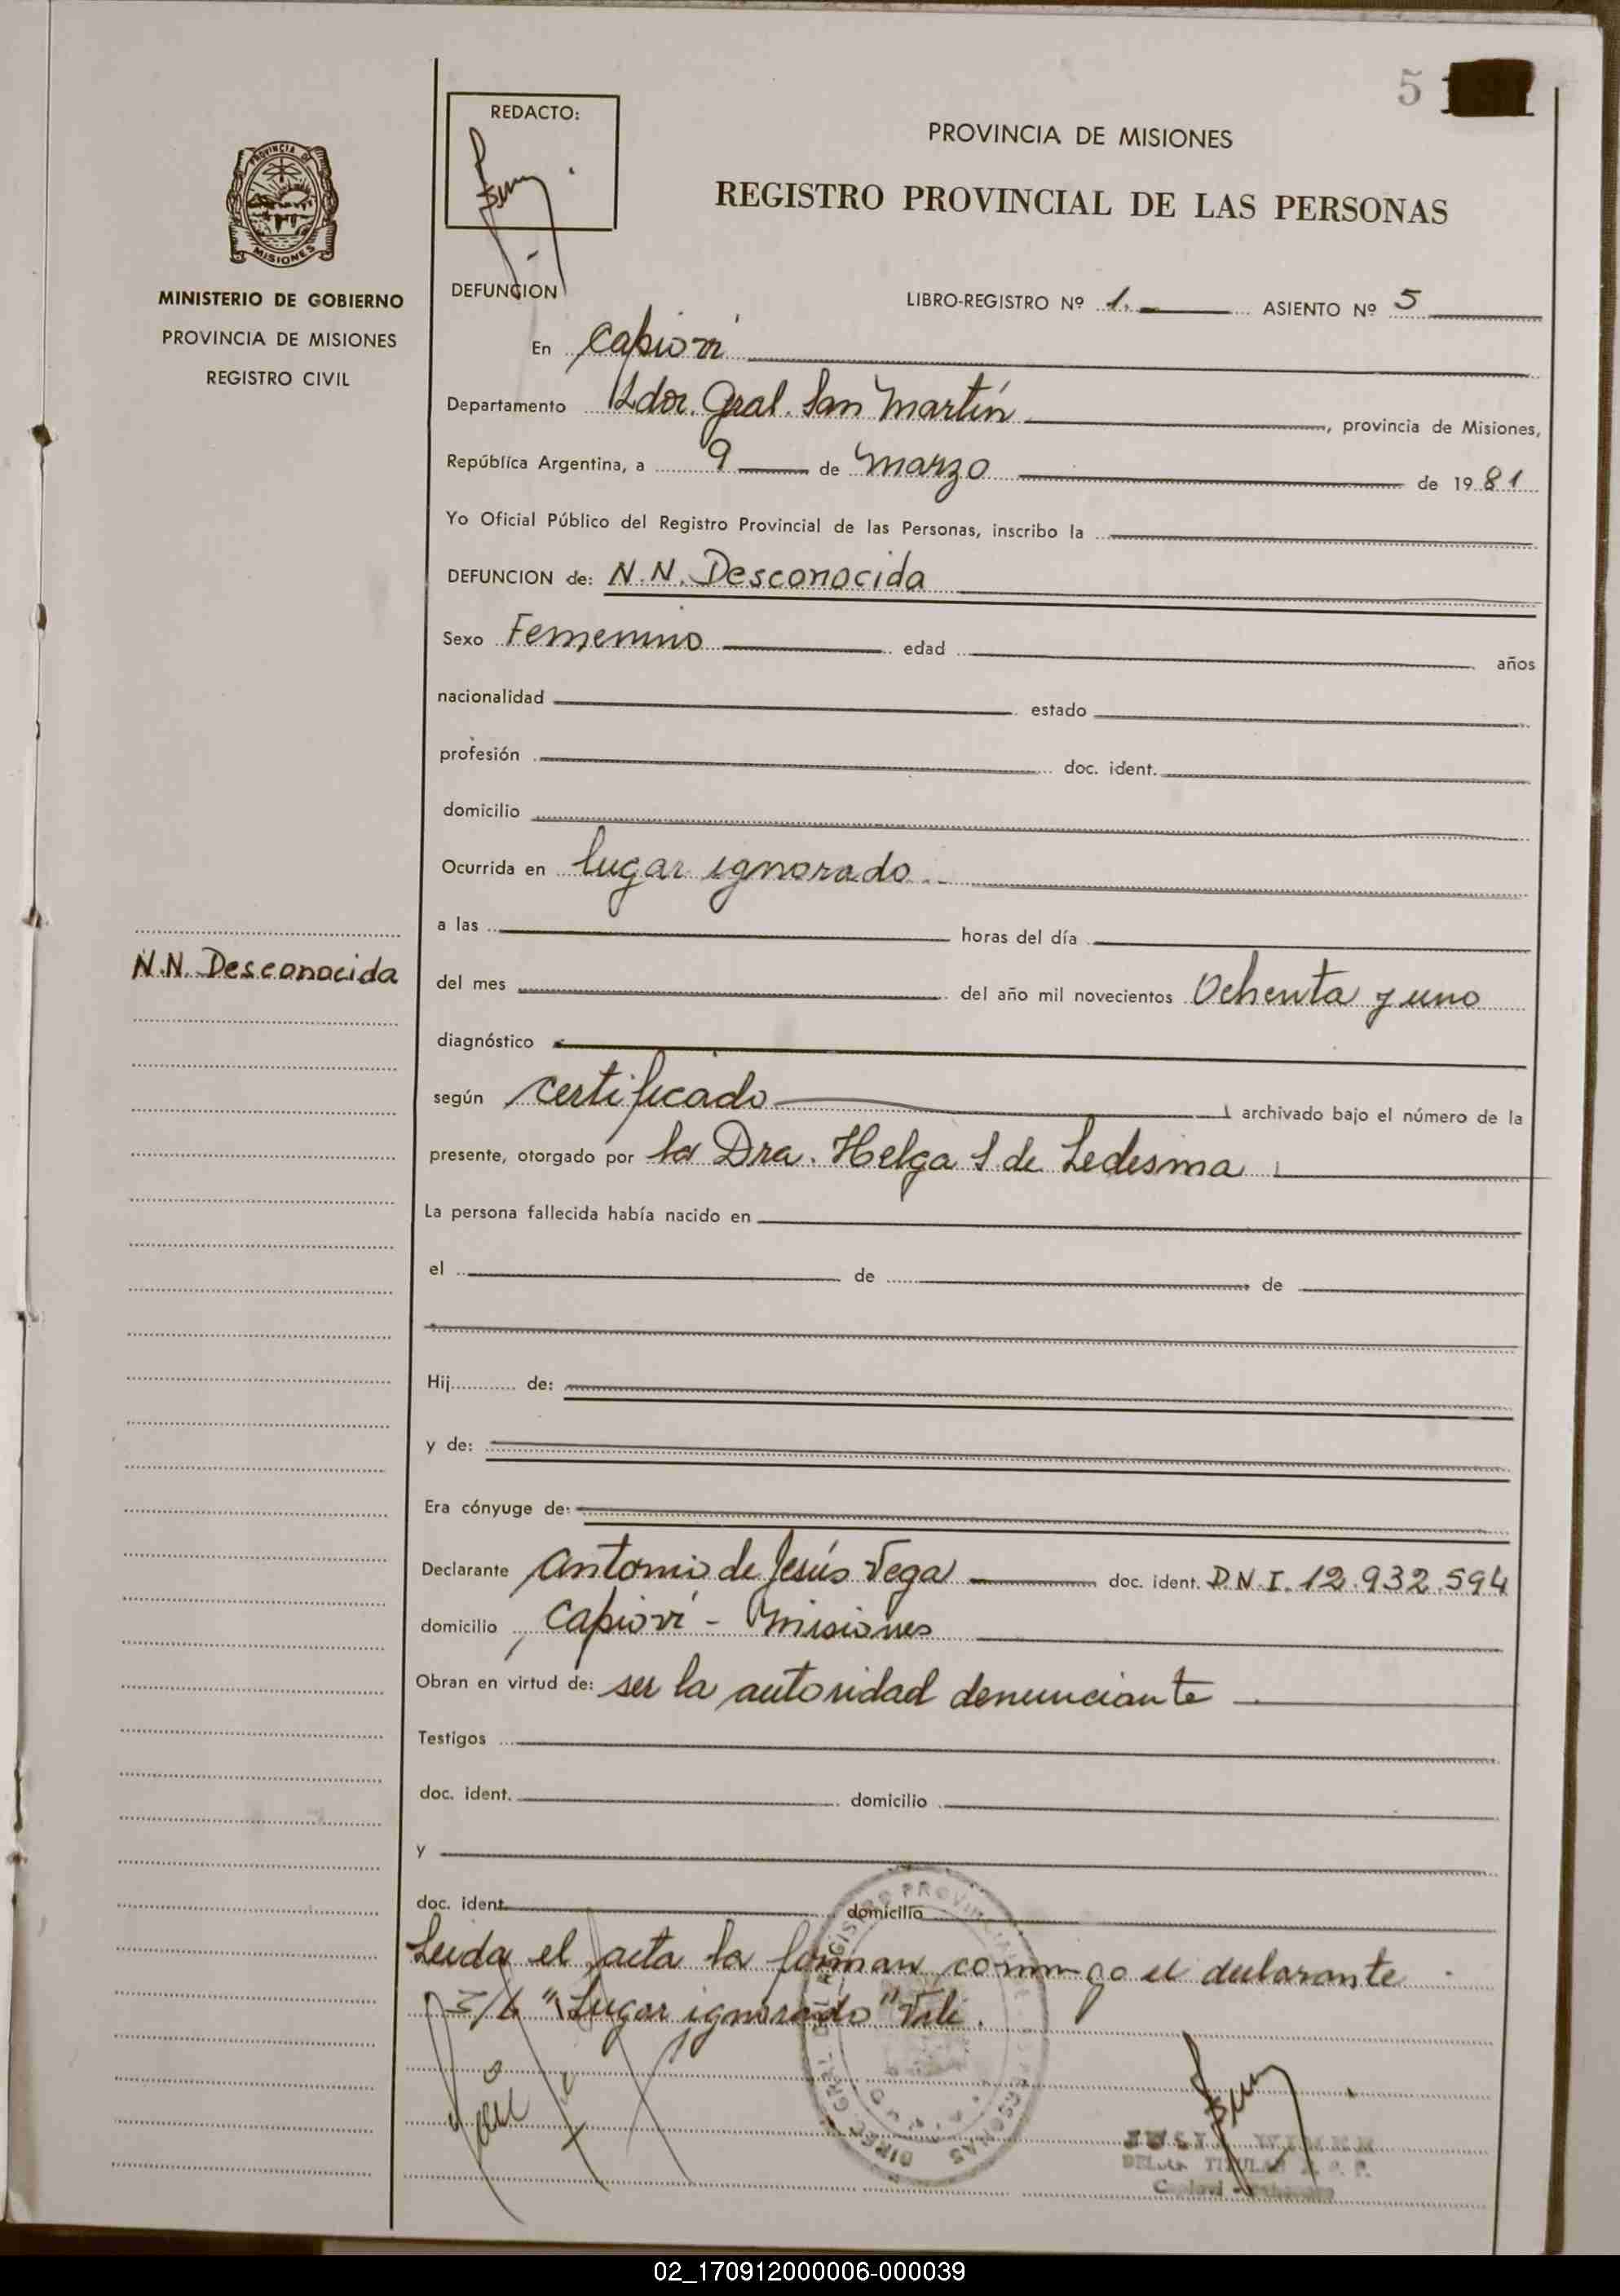 5
REDACTO:
PROVINCIA DE MISIONES
REGISTRO PROVINCIAL DE LAS PERSONAS
PROVINCIA DE
MISIONES
MINISTERIO DE GOBIERNO
PROVINCIA DE MISIONES
REGISTRO CIVIL
DEFUNCION
LIBRO-REGISTRO Nº 1. ASIENTO Nº 5
En Capioví
Departamento Ldor. Gral. San Martín, provincia de Misiones,
República Argentina, a 9 de Marzo de 1981
Yo Oficial Público del Registro Provincial de las Personas, inscribo la
DEFUNCION de: N.N. Desconocida
Sexo Femenino edad años
nacionalidad estado
profesión doc. ident.
domicilio
Ocurrida en lugar ignorado
a las horas del día
N.N. Desconocida
del mes del año mil novecientos Ochenta y uno
diagnóstico
según certificado archivado bajo el número de la
presente, otorgado por la Dra. Helga S. de Ledesma
La persona fallecida había nacido en
el de de
Hij de:
y de:
Era cónyuge de:
Declarante Antonio de Jesús Vega doc. ident. D.N.I. 12.932.594
domicilio Capioví - Misiones
Obran en virtud de: ser la autoridad denunciante
Testigos
doc. ident. domicilio
y
doc. ident. domicilio
Leida el acta la forman conmigo el declarante
"Lugar ignorado" Vale.
TITULAR
02_170912000006-000039